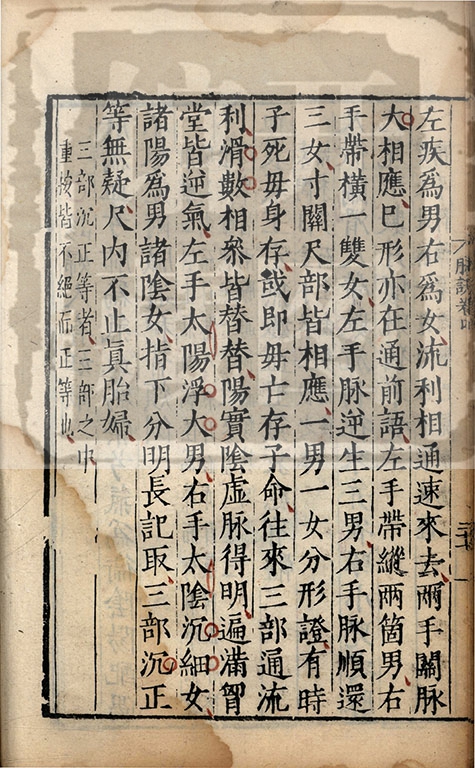 左疾爲男右爲女流利相通速來去兩手關脉
大相應已形亦在通前語左手帶縱兩箇男右
手帶橫一雙女左手脉逆生三男右手脉順還
三女寸關尺部皆相應一男一女分形證有時
子死毋身存或即毋亡存子命往來三部通流
利滑數相叅皆替替陽實陰虛脉得明遍滿胷
堂皆逆氣左手太陽浮大男右手太陰沉細女
諸陽爲男諸陰女指下分明長記取三部沉正
等無疑尺内不止眞胎婦
三部沉正等者三部之中
重按皆不絕而正等也
脉訣卷四